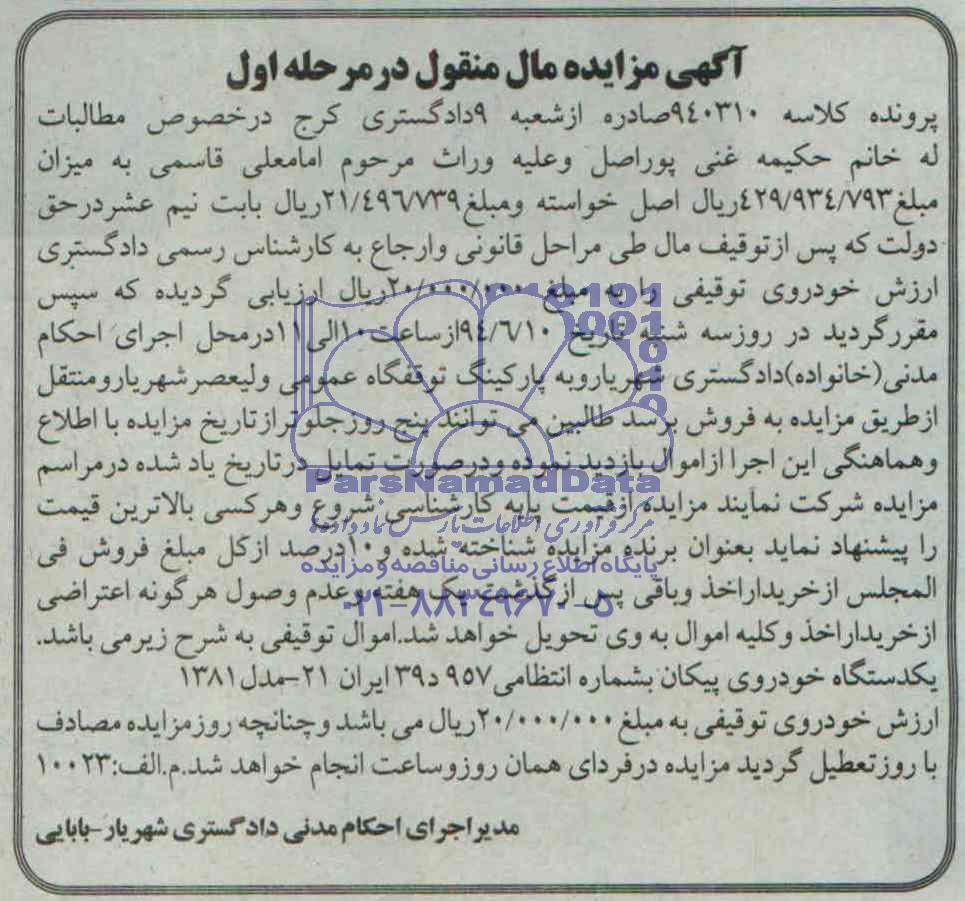 آگهی مزایده مال منقول در مرحله اول
پرونده کلاسه ۹۴۰۳۱۰صادره ازشعبه ۹دادگستری کرج درخصوص مطالبات
له خانم حکیمه غنی پوراصل وعلیه وراث مرحوم امامعلی قاسمی به میزان
مبلغ۴۲۹/۹۳۴/۷۹۳ریال اصل خواسته ومبلغ۲۱/۴۹۶/۷۳۹ریال بابت نیم عشردرحق
دولت که پس ازتوقیف مال طی مراحل قانونی وارجاع به کارشناس رسمی دادگستری
ارزش خودروی توقیفی را به مبلغ ۲۰/۰۰۰/۰۰۰ریال ارزیابی گردیده که سپس
مقررگردید در روزسه شنبه تاریخ ۹۴/۶/۱۰ازساعت ۱۰الی۱۱درمحل اجرای احکام
مدنی(خانواده)دادگستری شهریاروبه پارکینگ توقفگاه عمومی ولیعصرشهریارومنتقل
ازطریق مزایده به فروش برسد طالبین می توانند پنج روزجلوترازتاریخ مزایده با اطلاع
وهماهنگی این اجرا ازاموال بازدید نموده ودرصورت تمایل درتاریخ یاد شده درمراسم
ParsNamadData
مزایده شرکت نمایند مزایده ازقیمت پایه کارشناسی شروع وهرکسی بالاترین قیمت
مرکز فرآوری اطلاعات پارس نماد داده ها
را پیشنهاد نماید بعنوان برنده مزایده شناخته شده و۱۰درصد ازکل مبلغ فروش فی
پایگاه اطلاع رسانی مناقصه و مزایده
المجلس ازخریداراخذ وباقی پس ازگذشت یک هفته وعدم وصول هرگونه اعتراضی
۰۲۱-۸۸۳۴۹۶۷۰-۵
ازخریداراخذ وکلیه اموال به وی تحویل خواهد شد.اموال توقیفی به شرح زیرمی باشد.
یکدستگاه خودروی پیکان بشماره انتظامی۹۵۷ د۳۹ ایران ۲۱-مدل۱۳۸۱
ارزش خودروی توقیفی به مبلغ ۲۰/۰۰۰/۰۰۰ریال می باشد وچنانچه روزمزایده مصادف
با روزتعطیل گردید مزایده درفردای همان روزوساعت انجام خواهد شد.م.الف:۱۰۰۲۳
مدیراجرای احکام مدنی دادگستری شهریار-بابایی